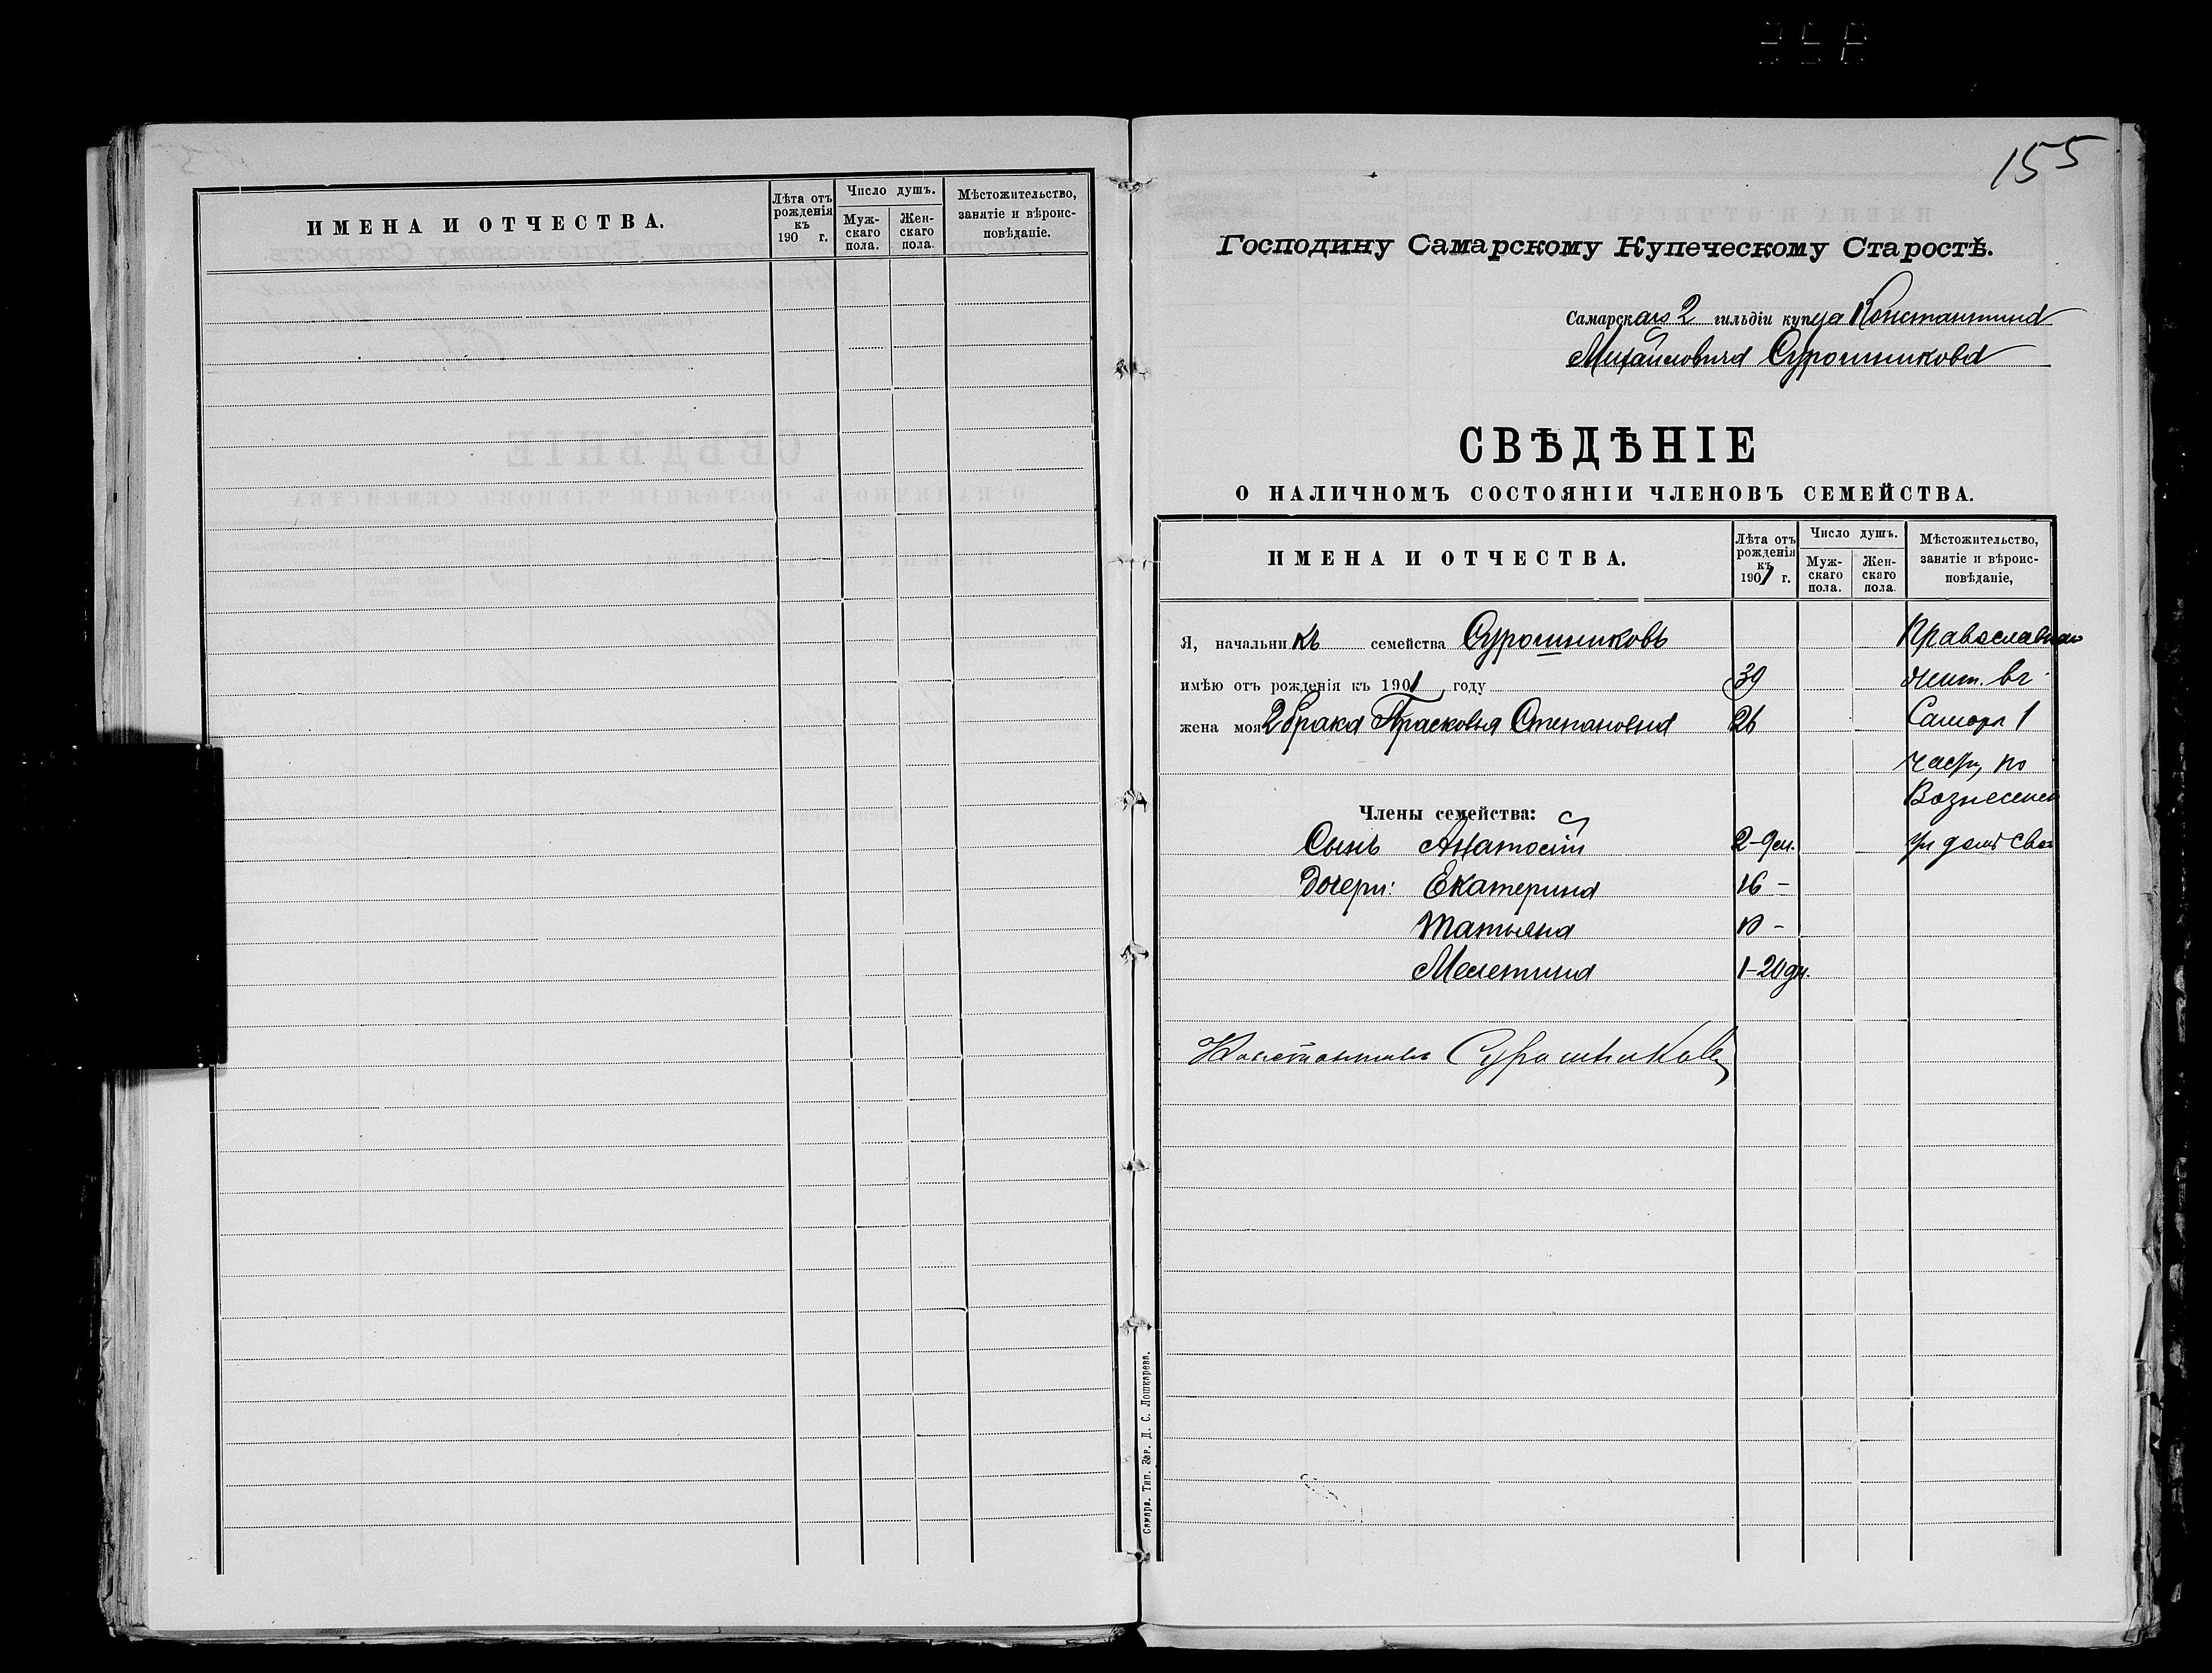 ИМЕНА И ОТЧЕСТВА.
Лѣта отъ рожденія къ 190 г.
Число душъ.
Муж-скаго пола.
Жен-скаго пола.
Мѣстожительство, занятіе и вѣроис-повѣданіе.
155
Господину Самарскому Купеческому Старостѣ.
Самарскаго 2 гильдіи купца Константина
Михайловича Сурошникова
СВѢДѢНІЕ
О НАЛИЧНОМЪ СОСТОЯНІИ ЧЛЕНОВЪ СЕМЕЙСТВА.
ИМЕНА И ОТЧЕСТВА.
Лѣта отъ рожденія къ 1901 г.
Число душъ.
Муж-скаго пола.
Жен-скаго пола.
Мѣстожительство, занятіе и вѣроис-повѣданіе,
Я, начальникъ семейства Сурошниковъ
имѣю отъ рожденія къ 1901 году 39 жит. въ
жена моя 2 брака Прасковья Степановна 26 Самарѣ 1
части, по
Вознесенск
Члены семейства:
Сынъ Анатолій 2-9 м. ул домѣ свой
Дочери: Екатерина 16 -
Татьяна
1-20 дн.
Константинъ Сурошниковъ
Самара. Тип. Зав. Д. С. Лошкарева.